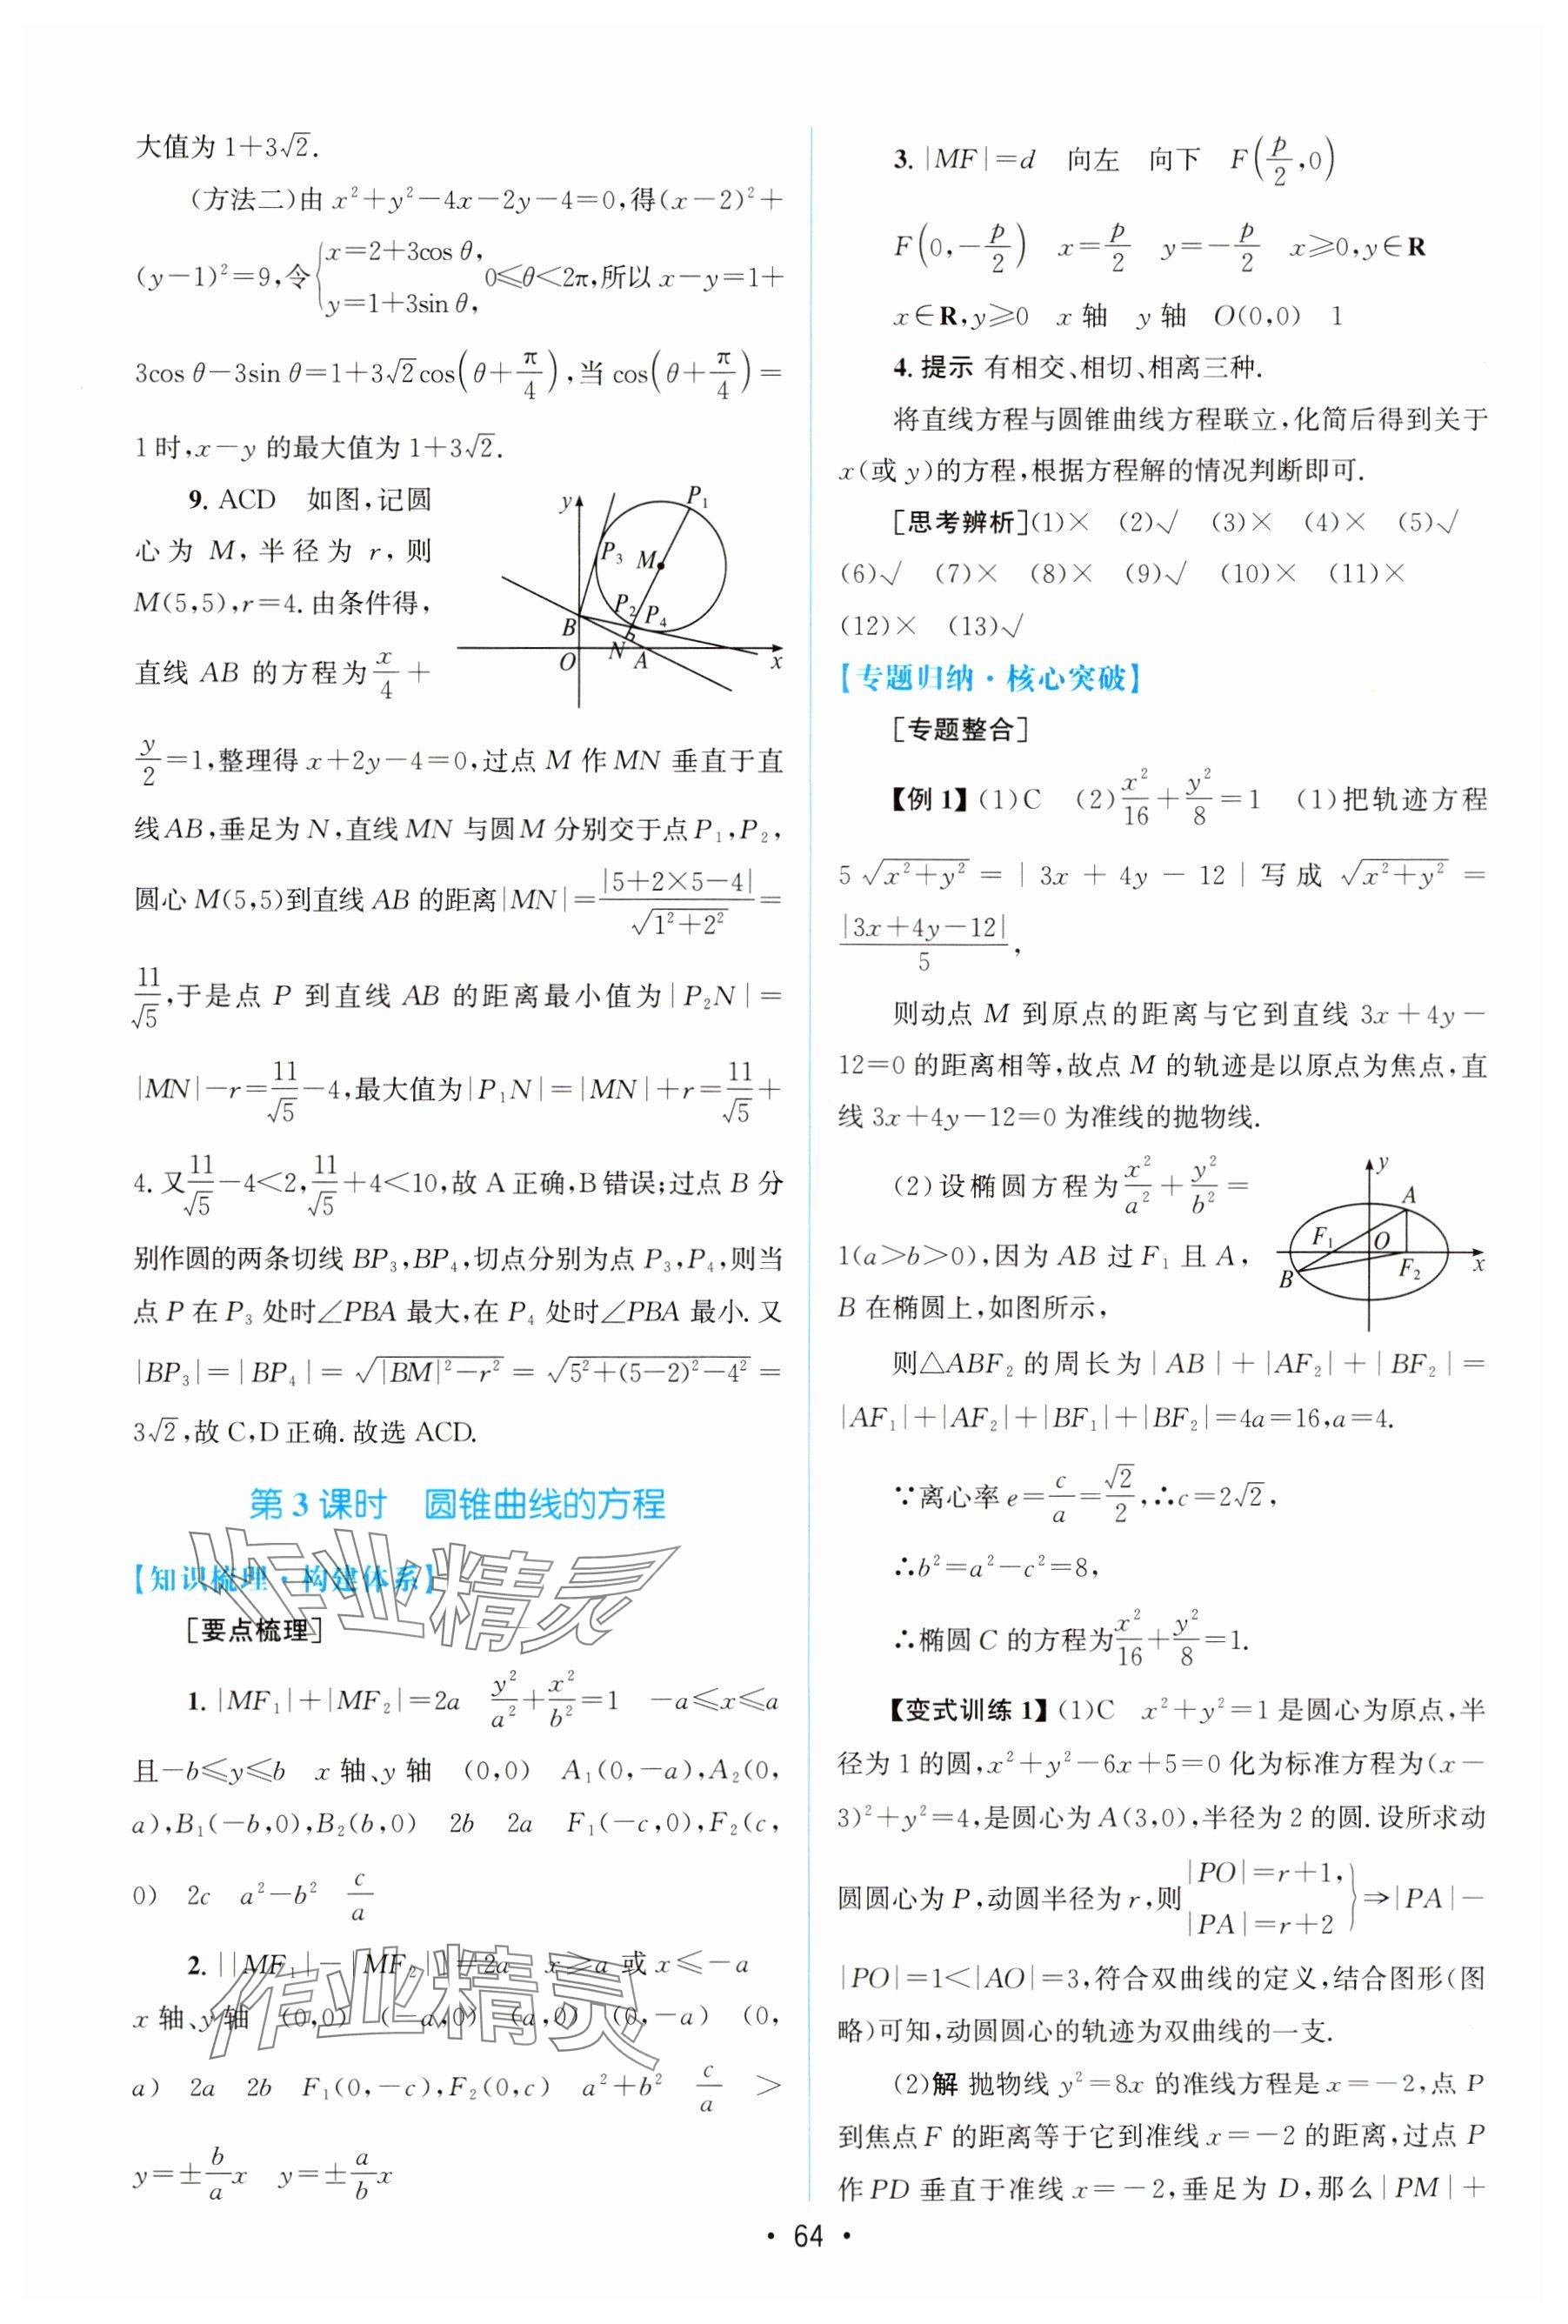 大值为 1+3√2.
(方法二)由 x²+y²-4x-2y-4=0,得(x-2)²+
(y-1)²=9,令{x=2+3cos θ, y=1+3sin θ, 0≤θ<2π,所以 x-y=1+
3cos θ-3sin θ=1+3√2cos(θ+π/4),当 cos(θ+π/4)=
1 时,x-y 的最大值为 1+3√2.
9. ACD 如图,记圆
心为 M,半径为 r,则
M(5,5),r=4.由条件得,
直线 AB 的方程为 x/4+
y P₁ P₃ M P₂ P₄ B O N A x
y/2=1,整理得 x+2y-4=0,过点 M 作 MN 垂直于直
线AB,垂足为 N,直线 MN 与圆 M 分别交于点 P₁,P₂,
圆心 M(5,5)到直线 AB 的距离|MN|=|5+2×5-4|/√(1²+2²)=
11/√5,于是点 P 到直线 AB 的距离最小值为|P₂N|=
|MN|-r=11/√5-4,最大值为|P₁N|=|MN|+r=11/√5+
4.又11/√5-4<2,11/√5+4<10,故 A 正确,B 错误;过点 B 分
别作圆的两条切线 BP₃,BP₄,切点分别为点 P₃,P₄,则当
点 P 在 P₃ 处时∠PBA 最大,在 P₄ 处时∠PBA 最小.又
|BP₃|=|BP₄|=√(|BM|²-r²)=√(5²+(5-2)²-4²)=
3√2,故 C,D 正确.故选 ACD.
第 3 课时 圆锥曲线的方程
【知识梳理·构建体系】
[要点梳理]
1. |MF₁|+|MF₂|=2a y²/a²+x²/b²=1 -a≤x≤a
且-b≤y≤b x 轴、y 轴 (0,0) A₁(0,-a),A₂(0,
a),B₁(-b,0),B₂(b,0) 2b 2a F₁(-c,0),F₂(c,
0) 2c a²-b² c/a
2. ||MF₁|-|MF₂||=2a x≥a 或 x≤-a
x 轴、y 轴 (0,0) (-a,0) (a,0) (0,-a) (0,
a) 2a 2b F₁(0,-c),F₂(0,c) a²+b² c/a >
y=±b/a x y=±a/b x
作业精灵
作业精灵
3. |MF|=d 向左 向下 F(p/2,0)
F(0,-p/2) x=p/2 y=-p/2 x≥0,y∈R
x∈R,y≥0 x 轴 y 轴 O(0,0) 1
4. 提示 有相交、相切、相离三种.
将直线方程与圆锥曲线方程联立,化简后得到关于
x(或 y)的方程,根据方程解的情况判断即可.
[思考辨析](1)× (2)√ (3)× (4)× (5)√
(6)√ (7)× (8)× (9)√ (10)× (11)×
(12)× (13)√
【专题归纳·核心突破】
[专题整合]
【例 1】(1)C (2)x²/16+y²/8=1 (1)把轨迹方程
5√(x²+y²)=|3x+4y-12|写成 √(x²+y²)=
|3x+4y-12|/5,
则动点 M 到原点的距离与它到直线 3x+4y-
12=0 的距离相等,故点 M 的轨迹是以原点为焦点,直
线 3x+4y-12=0 为准线的抛物线.
(2)设椭圆方程为x²/a²+y²/b²=
1(a>b>0),因为 AB 过 F₁ 且 A,
B 在椭圆上,如图所示,
y A F₁ O F₂ x B
则△ABF₂ 的周长为|AB|+|AF₂|+|BF₂|=
|AF₁|+|AF₂|+|BF₁|+|BF₂|=4a=16,a=4.
∵离心率 e=c/a=√2/2,∴c=2√2,
∴b²=a²-c²=8,
∴椭圆 C 的方程为x²/16+y²/8=1.
【变式训练 1】(1)C x²+y²=1 是圆心为原点,半
径为 1 的圆,x²+y²-6x+5=0 化为标准方程为(x-
3)²+y²=4,是圆心为 A(3,0),半径为 2 的圆.设所求动
圆圆心为 P,动圆半径为 r,则 |PO|=r+1, |PA|=r+2}⇒|PA|-
|PO|=1<|AO|=3,符合双曲线的定义,结合图形(图
略)可知,动圆圆心的轨迹为双曲线的一支.
(2)解 抛物线 y²=8x 的准线方程是 x=-2,点 P
到焦点 F 的距离等于它到准线 x=-2 的距离,过点 P
作 PD 垂直于准线 x=-2,垂足为 D,那么|PM|+
·64·